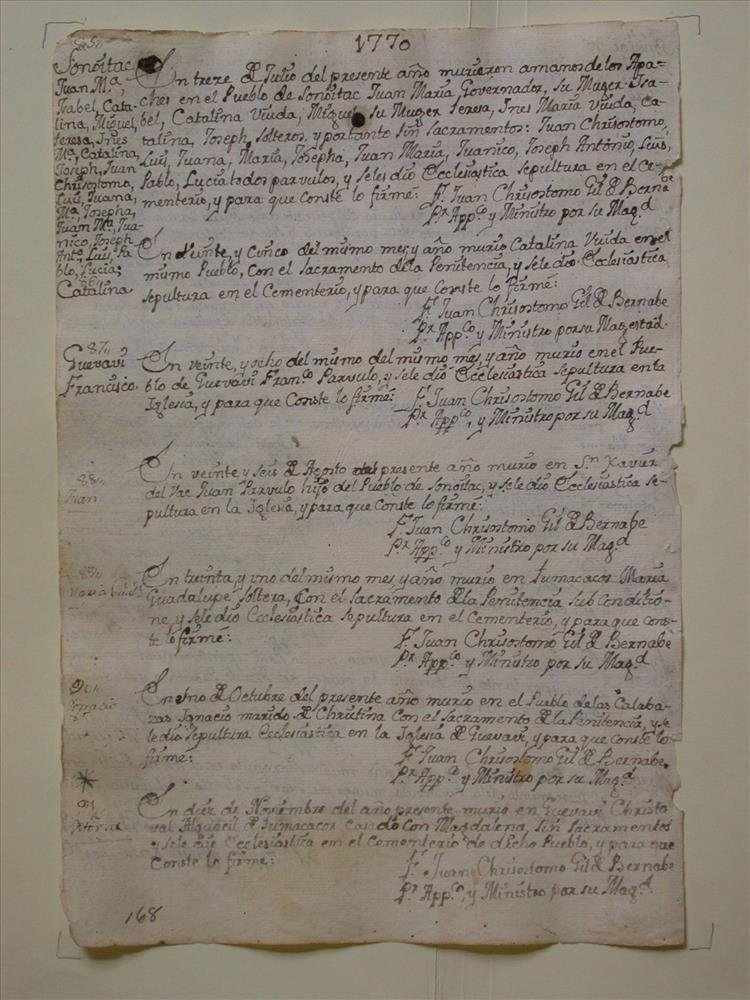 1770
85,,
Sonoitac
Juan M.ª,
Ysabel, Cata-
lina, Miguel,
teresa, Ines
M.ª, Catalina,
Joseph, Juan
Chrisostomo,
Luis, Juana,
M.ª, Josepha,
Juan M.ª, Jua-
nico, Joseph
Ant.º, Luis, Pa-
blo, Lucia;
En treze de Julio del presente año murieron a manos de los Apa-
ches en el Pueblo de Sonoitac Juan Maria Governador, su Muger Isa-
bel, Catalina Viuda, Miguel su Muger teresa, Ines Maria viuda, Ca-
talina, Joseph, Solteros, y portanto sin Sacramentos: Juan Chrisostomo,
Luis, Juana, Maria, Josepha, Juan Maria, Juanico, Joseph Antonio, Luis,
Pablo, Lucia todos parvulos, y seles dio Ecclesiastica sepultura en el Ce-
menterio, y para que Conste lo firmé: Fr. Juan Chrisostomo Gil de Berna-
be
Pr. App.co y Ministro por su Mag.d
86,,
Catalina
En veinte, y cinco del mismo mes, y año murio Catalina Viuda en el
mismo Pueblo, con el Sacramento dela Penitencia, y sele dio Ecclesiastica
sepultura en el Cementerio, y para que Conste lo firmé:
Fr. Juan Chrisostomo Gil de Bernabe
Pr. App.co y Ministro por su Magestad.
87,,
Guevavi
Francisco.
En veinte, y ocho del mismo del mismo mes, y año murio en el Pue-
blo de Guevavi Fran.co Parvulo, y sele dio Ecclesiastica sepultura en la
Iglesia, y para que Conste lo firmé: Fr. Juan Chrisostomo Gil de Bernabe
Pr. App.co, y Ministro por su Mag.d
88,,
Juan
En veinte y seis de Agosto del presente año murio en S.n Xavier
del Vac Juan Parvulo hijo del Pueblo de Sonoitac, y sele dio Ecclesiastica se-
pultura en la Iglesia, y para que Conste lo firmé:
Fr. Juan Chrisostomo Gil de Bernabe
Pr. App.co y Ministro por su Mag.d
89,,
En treinta, y uno del mismo mes, y año murio en tumacacor Maria
Guadalupe Soltera, Con el Sacramento de la Penitencia sub conditio-
ne, y sele dio Ecclesiastica sepultura en el Cementerio, y para que Cons-
te lo firmé: Fr. Juan Chrisostomo Gil de Bernabe
Pr. App.co y Ministro por su Mag.d
90,,
Ignacio
En uno de Octubre del presente año murio en el Pueblo delas Calaba-
zas Ignacio marido de Christina Con el Sacramento de la Penitencia, y se
le dio sepultura Ecclesiastica en la Iglesia de Guevavi, y para que Conste lo
firmé: Fr. Juan Chrisostomo Gil de Bernabe.
Pr. App.co y Ministro por su Mag.d
91
En diez de Noviembre del año presente murio en Guevavi Christo-
val Alguacil de Tumacacor casado con Magdalena, sin Sacramentos
y sele dio Ecclesiastica en el Cementerio de dicho Pueblo, y para que
Conste lo firmé: Fr. Juan Chrisostomo Gil de Bernabe
Pr. App.co, y Ministro por su Mag.d
168